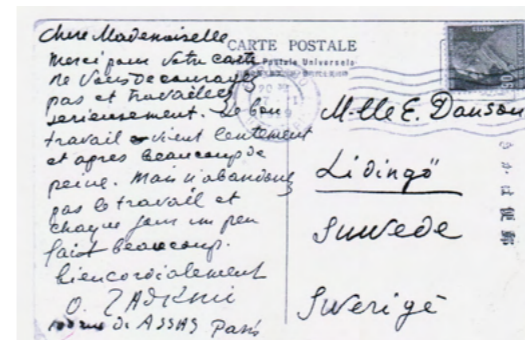 Chere Mademoiselle
CARTE POSTALE
Merci pour votre carte
Postale Universelle
ne vous decourager
pas et travailler
serieusement. Le bon
travail vient lentement
et apres beaucoup de
peine. Mais n'abandonez
pas le travail et
chaque jour un peu
fait beaucoup.
bien cordialement
O. ZADKINE
100 rue de ASSAS Paris
M-lle E. Danson
Lidingö
Suwede
Sverige
便郵